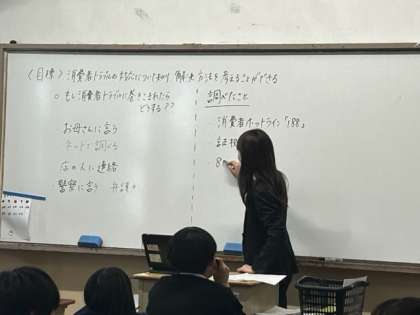 (目標) 消費者トラブルの対応について知り、解決方法を考えることができる
○ もし消費者トラブルに巻きこまれたら
どうする??
お母さんに言う
ネットで調べる
店の人に連絡
・警察に言う 弁護士
調べたこと
・消費者ホットライン「188」
・証
・8